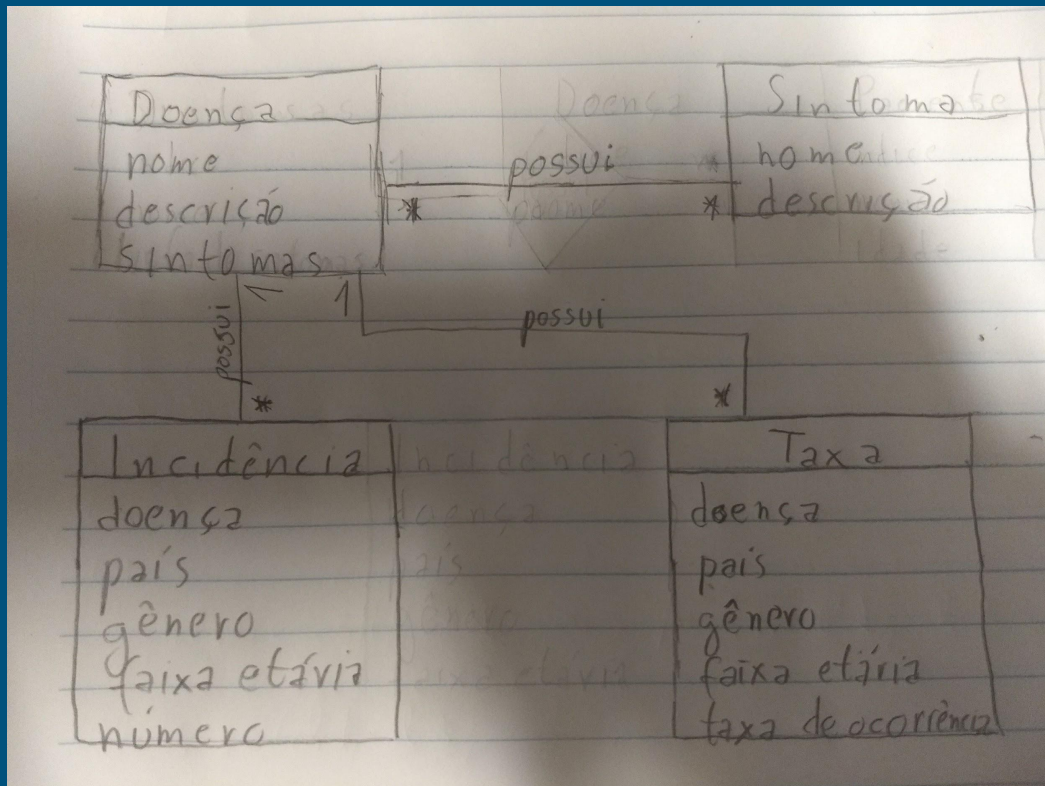 Doença
nome
descrição
sintomas
possui
*
*
Sintoma
nome
descrição
1
1
possui
possui
*
*
Incidência
doença
país
gênero
faixa etária
número
Taxa
doença
país
gênero
faixa etária
taxa de ocorrência